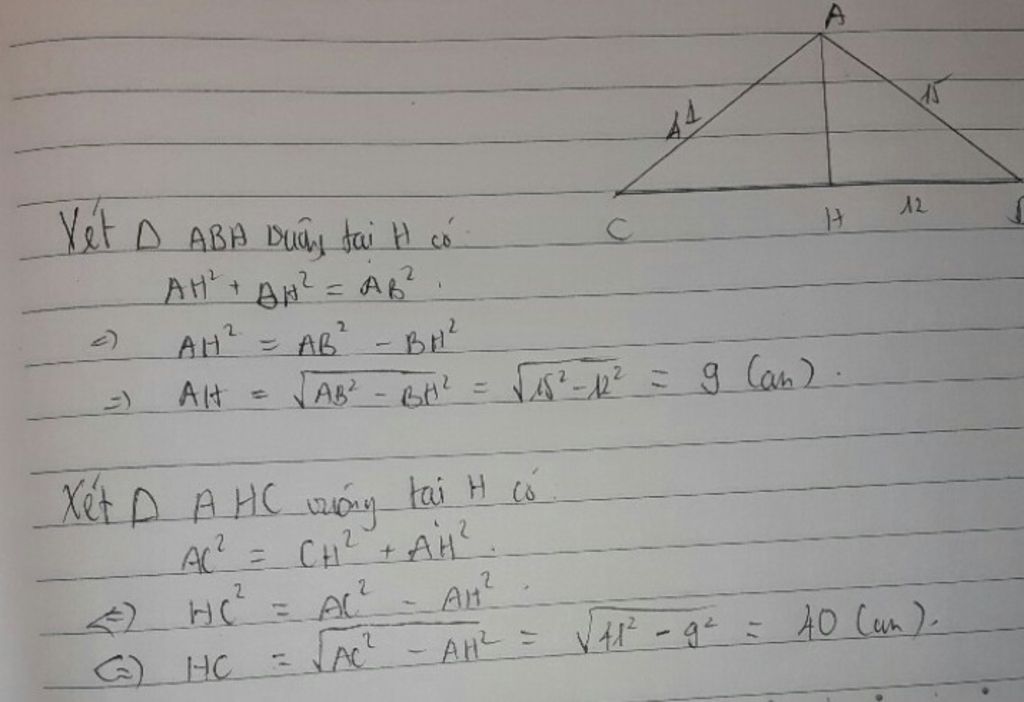 A
41
15
C
H
12
Xét Δ ABH vuông tại H có
AH² + BH² = AB².
=) AH² = AB² - BH²
=) AH = √AB² - BH² = √15² - 12² = 9 (cm).
Xét Δ AHC vuông tại H có
AC² = CH² + AH².
<=) HC² = AC² - AH².
(=) HC = √AC² - AH² = √41² - 9² = 40 (cm).